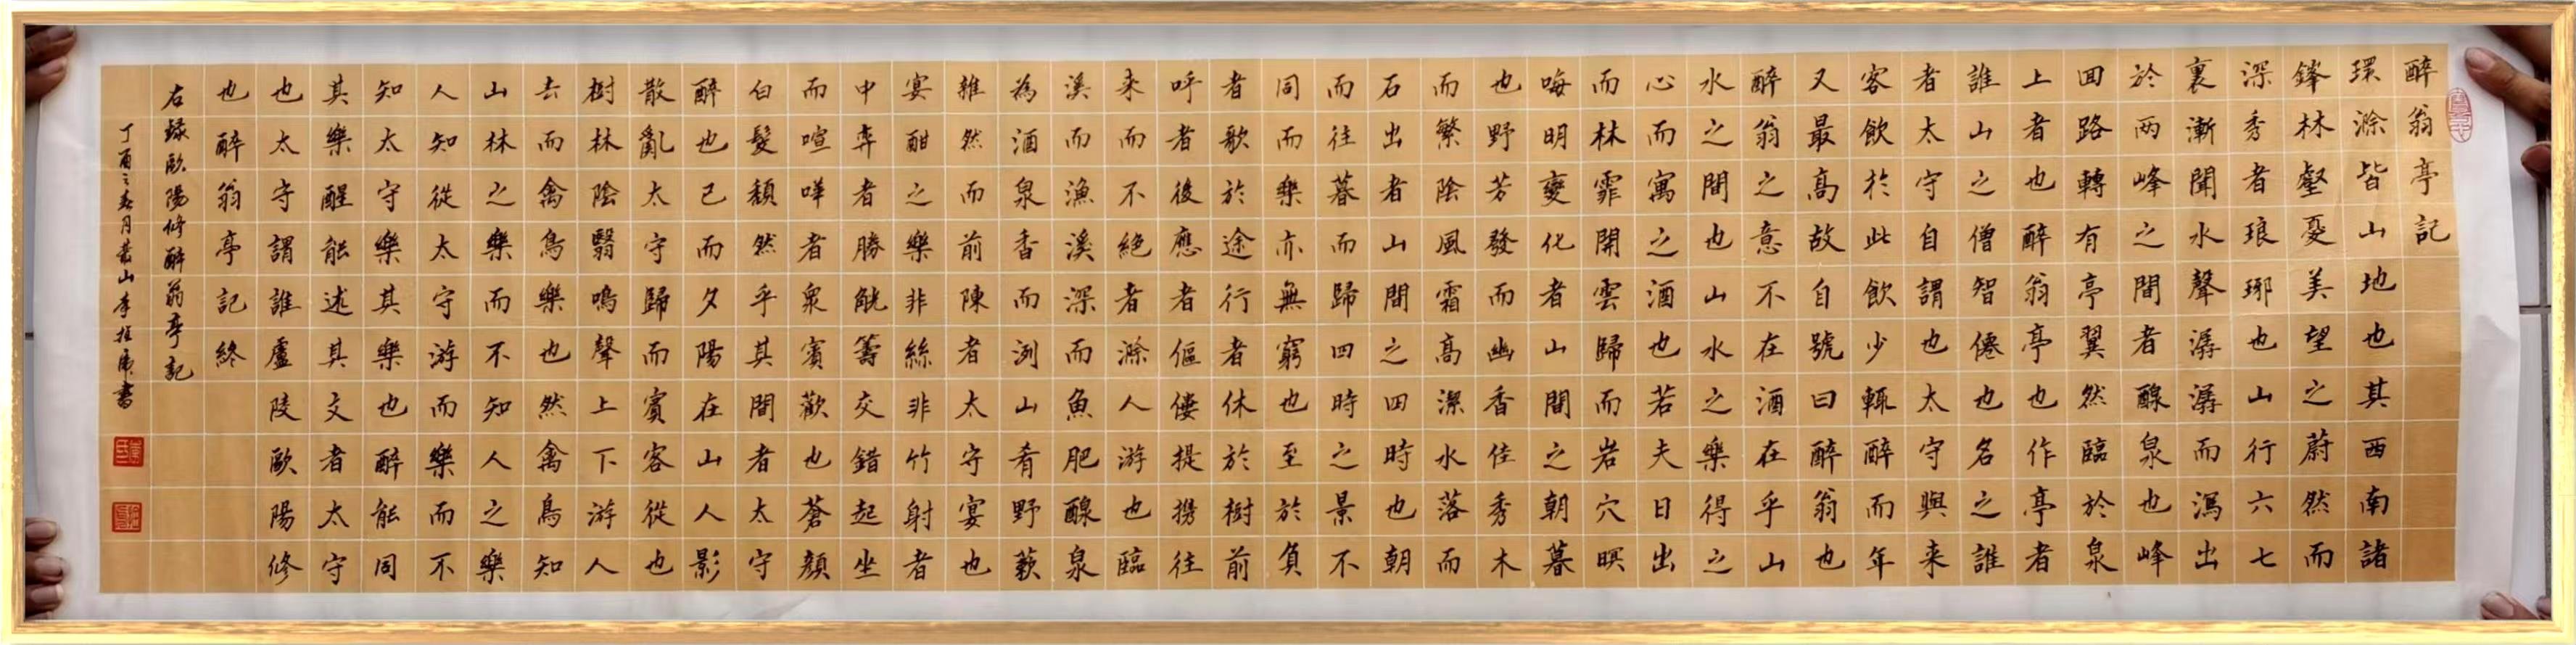 醉翁亭記
環滁皆山地也其西南諸
鋒林壑憂美望之蔚然而
深秀者琅琊也山行六七
裏漸聞水聲潺潺而瀉出
於两峰之間者釀泉也峰
囬路轉有亭翼然臨於泉
上者也醉翁亭也作亭者
誰山之僧智僊也名之誰
者太守自謂也太守與来
客飲於此飲少輒醉而年
又最高故自號曰醉翁也
醉翁之意不在酒在乎山
水之間也山水之樂得之
心而寓之酒也若夫日出
而林霏開雲歸而岩穴暝
晦明變化者山間之朝暮
也野芳發而幽香佳秀木
而繁陰風霜高潔水落而
石出者山間之四時也朝
而往暮而歸四時之景不
同而樂亦無窮也至於負
者歌於途行者休於樹前
呼者後應者傴僂提携往
来而不絕者滁人游也臨
溪而漁溪深而魚肥釀泉
為酒泉香而洌山肴野蔌
雜然而前陳者太守宴也
宴酣之樂非絲非竹射者
中弈者勝觥籌交錯起坐
而喧嘩者衆賓歡也蒼顏
白髮頹然乎其間者太守
醉也已而夕陽在山人影
散亂太守歸而賓客從也
樹林陰翳鳴聲上下游人
去而禽鳥樂也然禽鳥知
山林之樂而不知人之樂
人知從太守游而樂而不
知太守樂其樂也醉能同
其樂醒能述其文者太守
也太守謂誰廬陵歐陽修
也醉翁亭記終
右録歐陽修醉翁亭記
丁酉之春月山李書